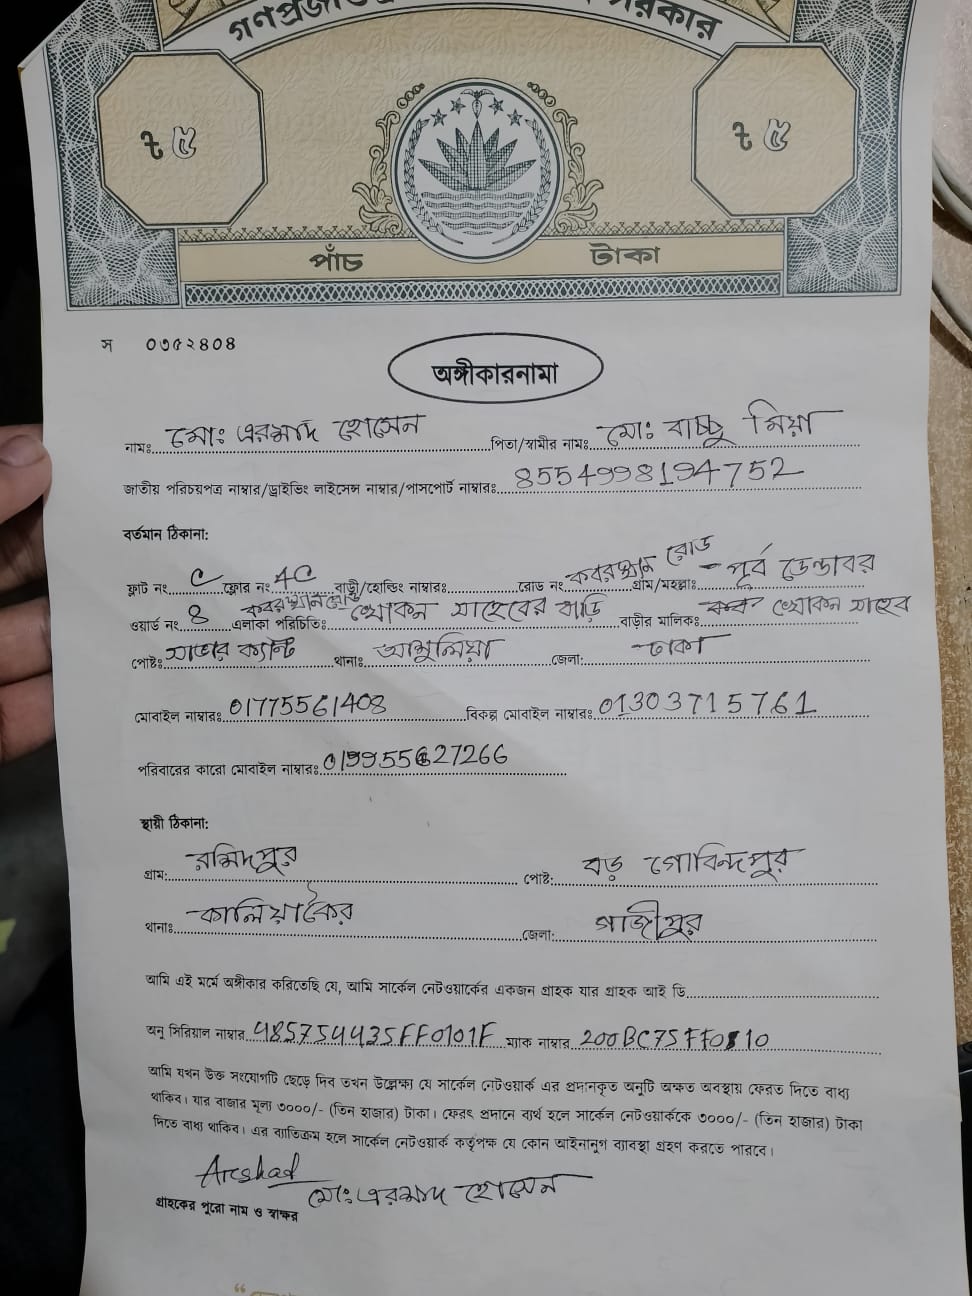 গণপ্রজাতন্ত্রী সরকার
৳ ৫ ৳ ৫
পাঁচ টাকা
স ০৩৫২৪০৪
অঙ্গীকারনামা
নামঃ মোঃ এরশাদ হোসেন পিতা/স্বামীর নামঃ মোঃ বাচ্চু মিয়া
জাতীয় পরিচয়পত্র নাম্বার/ড্রাইভিং লাইসেন্স নাম্বার/পাসপোর্ট নাম্বারঃ 8554998194752
বর্তমান ঠিকানা:
ফ্লাট নং C ফ্লোর নং 4C বাড়ী/হোল্ডিং নাম্বারঃ রোড নং কবরস্থান রোড গ্রাম/মহল্লাঃ - পূর্ব ডেন্ডাবর
ওয়ার্ড নং 8 এলাকা পরিচিতিঃ কবরস্থান রোড খোকন সাহেবের বাড়ি বাড়ীর মালিকঃ খোকন সাহেব
পোষ্টঃ সাভার ক্যান্ট থানাঃ আশুলিয়া জেলা: ঢাকা
মোবাইল নাম্বারঃ 01775561408 বিকল্প মোবাইল নাম্বারঃ 01303715761
পরিবারের কারো মোবাইল নাম্বারঃ
স্থায়ী ঠিকানা:
গ্রাম: রশিদপুর পোষ্ট: বড় গোবিন্দপুর
থানাঃ কালিয়াকৈর জেলা: গাজীপুর
আমি এই মর্মে অঙ্গীকার করিতেছি যে, আমি সার্কেল নেটওয়ার্কের একজন গ্রাহক যার গ্রাহক আই ডি
অনু সিরিয়াল নাম্বার 485754435FF0101F ম্যাক নাম্বার
আমি যখন উক্ত সংযোগটি ছেড়ে দিব তখন উল্লেক্ষ্য যে সার্কেল নেটওয়ার্ক এর প্রদানকৃত অনুটি অক্ষত অবস্থায় ফেরত দিতে বাধ্য
থাকিব। যার বাজার মূল্য ৩০০০/- (তিন হাজার) টাকা। ফেরৎ প্রদানে ব্যর্থ হলে সার্কেল নেটওয়ার্ককে ৩০০০/- (তিন হাজার) টাকা
দিতে বাধ্য থাকিব। এর ব্যতিক্রম হলে সার্কেল নেটওয়ার্ক কর্তৃপক্ষ যে কোন আইনানুগ ব্যাবস্থা গ্রহণ করতে পারবে।
Arcshad মোঃ এরশাদ হোসেন
গ্রাহকের পুরো নাম ও স্বাক্ষর